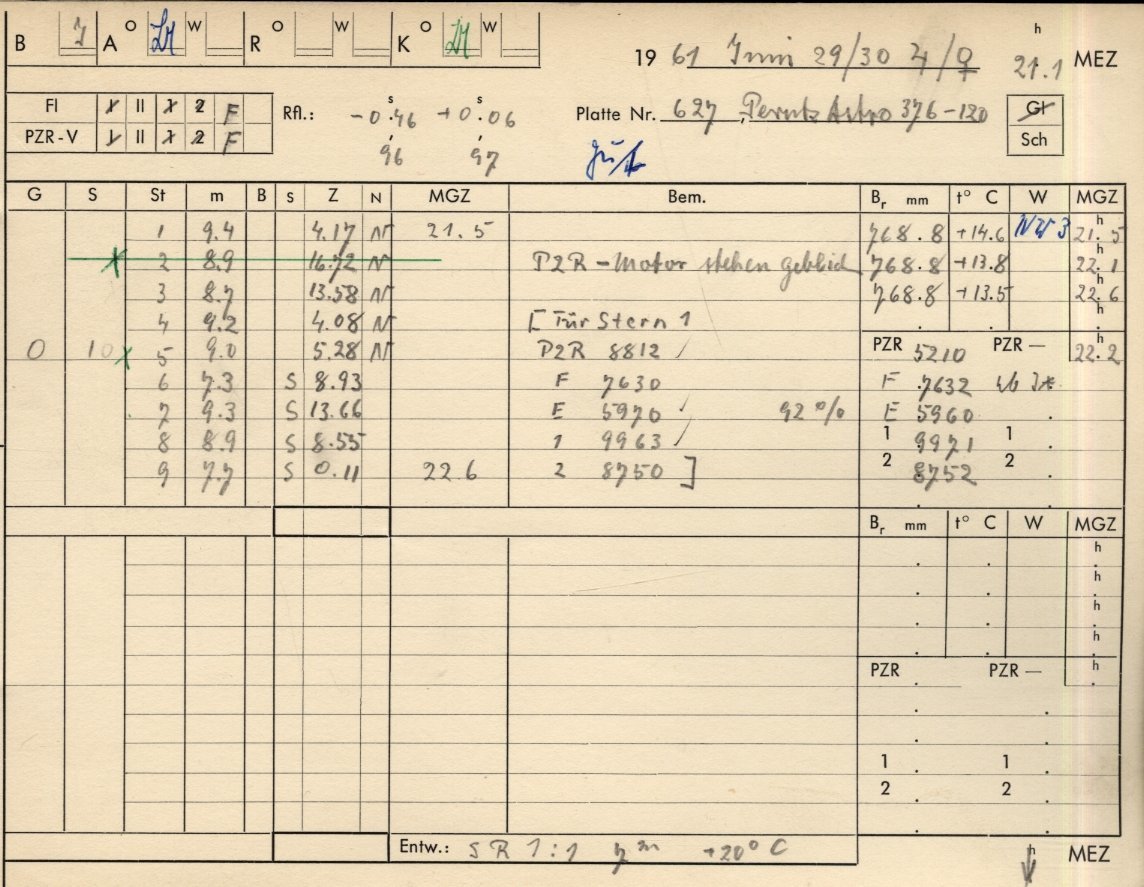 B A O W R O W K O W
1961 Juni 29/30 ♃/♀ 21.1 h MEZ
Fl II 2 F Rfl.: -0.46 s +0.06 s Platte Nr. 627, Perutz Astro 376-120 Gl
PZR-V II 2 F 96 97 gut Sch
G S St m B S Z N MGZ Bem. Br mm t° C W MGZ
1 9.4 4.17 N 21.5 768.8 +14.6 NW 3 21.5 h
2 8.9 16.72 N PZR-Motor stehen geblieb 768.8 +13.8 22.1 h
3 8.7 13.58 N 768.8 +13.5 22.6 h
4 9.2 4.08 N [ Für Stern 1 h
0 10 5 9.0 5.28 N PZR 8812 PZR 5210 PZR — 22.2 h
6 7.3 S 8.93 F 7630 F 7632
7 9.3 S 13.66 E 5970 92 % E 5960
8 8.9 S 8.55 1 9963 1 9971 1
9 7.7 S 0.11 22.6 2 8750 ] 2 8752 2
Br mm t° C W MGZ
h
h
h
h
PZR PZR — h
1 1
2 2
Entw.: SR 1:1 7 m +20° C h MEZ